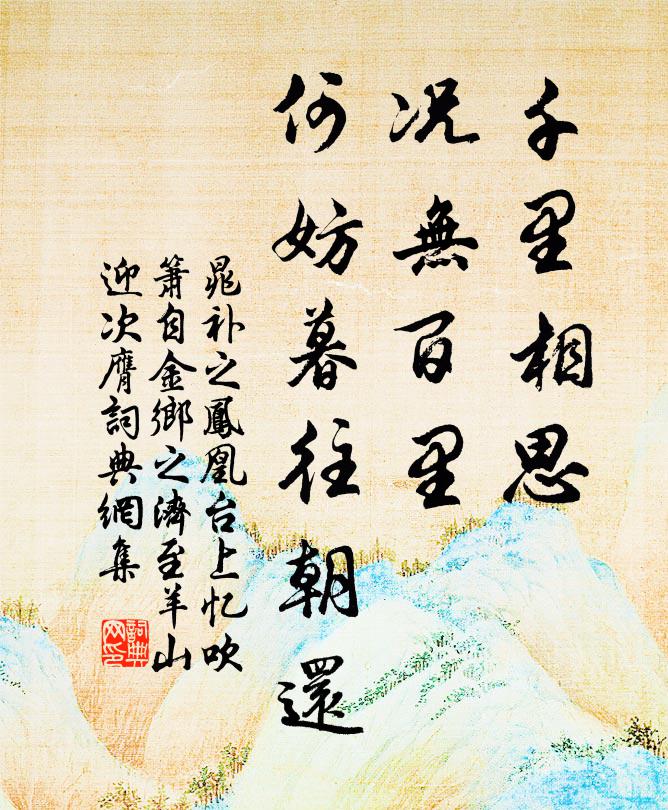 千里相思
况無百里
何妨暮往朝還
晁补之鳳凰台上忆吹
簫自金鄉之濟至羊山
迎次膺詞典網集
詞典
网印